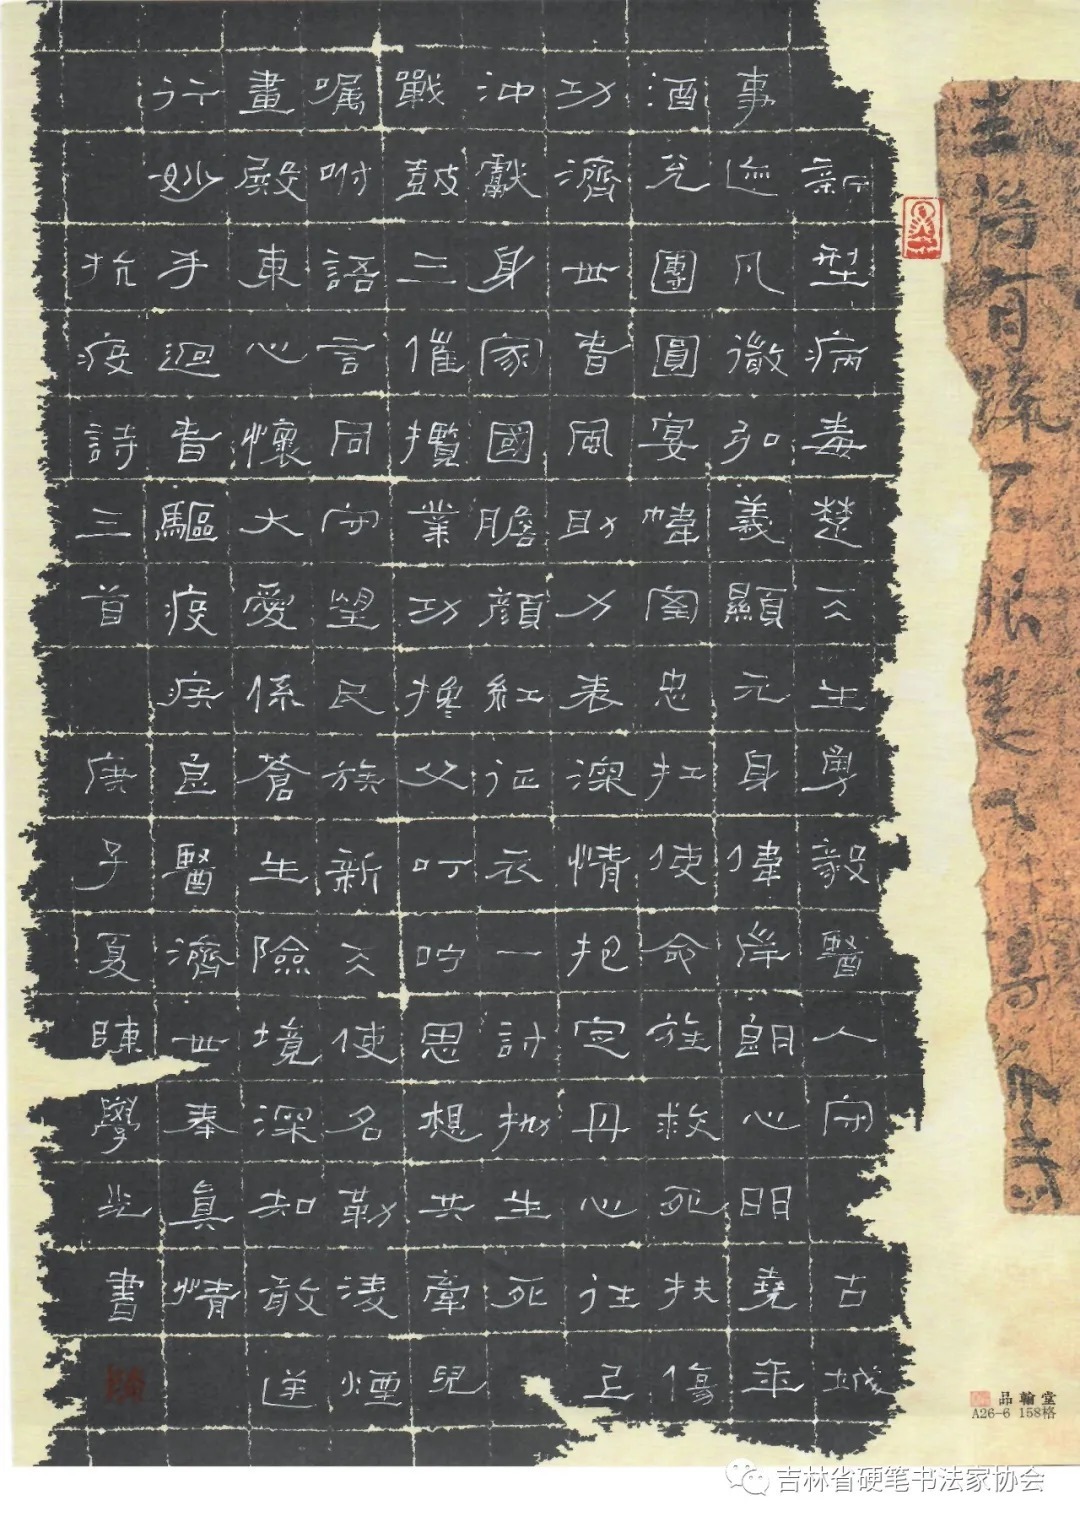 新型病毒楚天生勇毅醫人守古城
事迹凡微弘義顯元身偉岸朗心明堯年
酒兌團圓宴幃忠扛使命旌救死扶傷
功濟世春風助力表深情把定丹心往
沖獻身家國膽顏紅征衣一討批生死
戰鼓三催攬業功攙父叮嚀思想共牽兒
囑咐語言同守望民族新天使名勒凌煙
畫殿東心懷大愛係蒼生險境深知敢逆
行妙手迴春驅疫疾良醫濟世奉真情
抗疫詩三首庚子夏陳學書
品翰堂
A26-6 158格
吉林省硬笔书法家协会